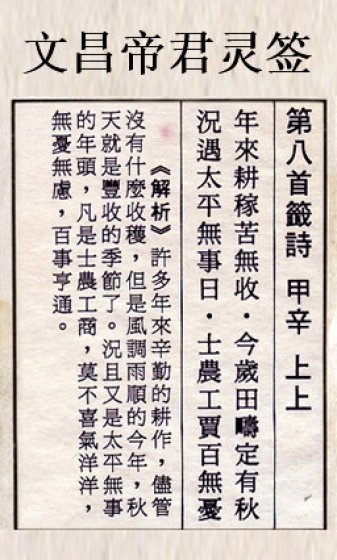 文昌帝君灵签
第八首籤詩 甲辛 上上
年來耕稼苦無收．今歲田疇定有秋
況遇太平無事日．士農工賈百無憂
《解析》許多年來辛勤的耕作，儘管
沒有什麼收穫，但是風調雨順的今年，秋
天就是豐收的季節了。況且又是太平無事
的年頭，凡是士農工商，莫不喜氣洋洋，
無憂無慮，百事亨通。